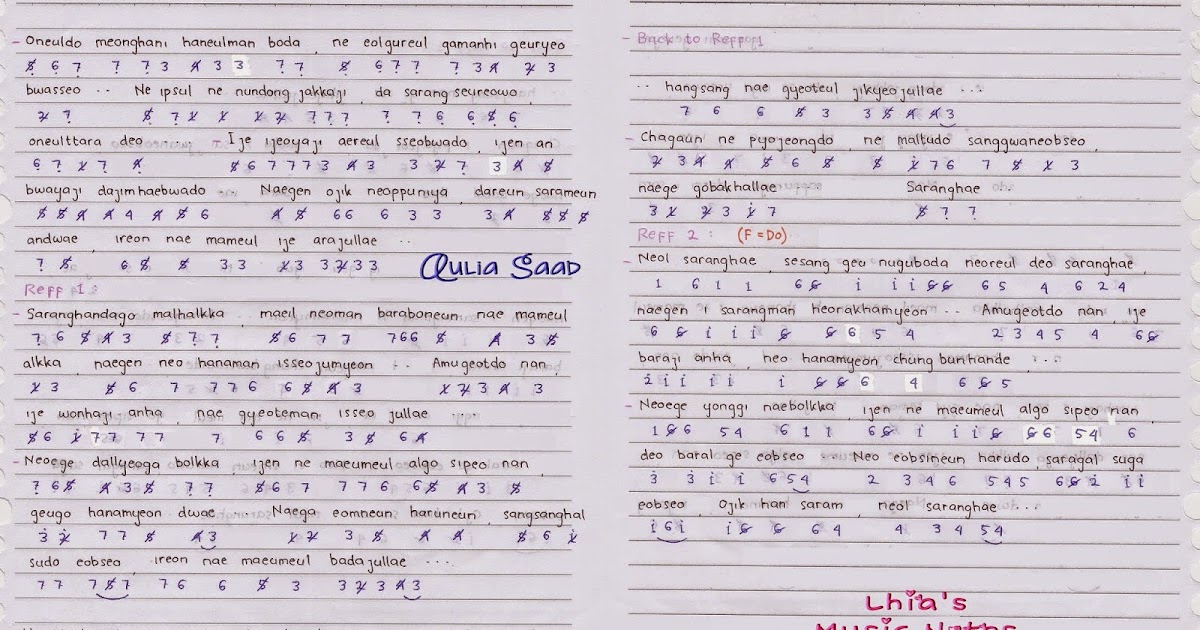 - Oneuldo meonghani haneulman boda , ne eolgureul gamanhi geuryeo
5̸ 6 7 7 7 3 4̸ 3 3 7 7 5̸ 6 7 7 7 3 4̸ 2̸ 3
bwasseo .. Ne ipsul ne nundong jakkaji , da sarang seureowo ,
2̸ 7 5̸ 7 1̸ 1̸ 1̸ 2̸ 7 7 7 7 7 6 6 5̸ 6
oneulttara deo - Ije ijeoyaji aereul sseobwado , ijen an
6 7 1̸ 7 4̸ 5̸ 6 7 7 7 3 4̸ 3 3 2̸ 7 3 4̸ 5̸
bwayaji dajimhaebwado ... Naegen ojik neoppuniya , dareun sarameun
5̸ 5̸ 4̸ 4̸ 4 4̸ 5̸ 6 4̸ 5̸ 6 6 6 3 3 3 4̸ 5̸ 5̸ 5̸
andwae , ireon nae mameul ije arajullae ..
7 5̸ 6 5̸ 5̸ 3 3 1̸ 3 3 2̸ 3 3
Aulia Saad
Reff 1 :
- Saranghandago malhalkka , maeil neoman baraboneun nae mameul
7 6 5̸ 4̸ 3 5̸ 7 7 5̸ 6 7 7 7 6 6 5̸ 4̸ 3 5̸
alkka , naegen neo hanaman isseojumyeon .. Amugeotdo nan ,
1̸ 3 5̸ 6 7 7 7 6 6 5̸ 4̸ 3 1̸ 2̸ 3 4̸ 3
ije wonhaji anha , nae gyeoteman isseo jullae ...
5̸ 6 1̸ 7 7 7 7 7 6 6 5̸ 3 5̸ 6 4̸
- Neoege dallyeoga bolkka , ijen ne maeumeul algo sipeo nan ,
7 6 5̸ 4̸ 3 5̸ 7 7 5̸ 6 7 7 7 6 6 5̸ 4̸ 3 5̸
geugo hanamyeon dwae ... Naega eomneun haruneun , sangsanghal
3 2̸ 7 7 5̸ 4̸ 3 1̸ 2̸ 3 5̸ 4̸ 4̸ 5̸ 6 1̸
sudo eobseo , ireon nae maeumeul badajullae ....
7 7 7 5̸ 7 7 6 6 5̸ 3 3 2̸ 3 4̸ 3
- Back to Reff 1
.. hangsang nae gyeoteul jikyeojullae ...
7 6 6 5̸ 3 3 5̸ 4̸ 4̸ 3
- Chagaun ne pyojeongdo , ne maltudo sanggwaneobseo ,
2̸ 3 4̸ 4̸ 5̸ 6 5̸ 5̸ 1̸ 7 6 7 5̸ 1̸ 3
naege gobakhallae Saranghae ..
3 1̸ 2̸ 3 1̸ 7 5̸ 7 7
Reff 2 : (F = Do)
- Neol saranghae , sesang geu nuguboda neoreul deo saranghae ,
1 6 1 1 6 6̸ i i i 6̸ 6̸ 6 5 4 6 2 4
naegen i sarangman heorakhamyeon .. Amugeotdo nan , ije
6 6̸ i i i 6̸ 6̸ 6 5 4 2 3 4 5 4 6 6̸
baraji anha , neo hanamyeon chung bunhande ...
2 i i i i i 6̸ 6̸ 6 4 6 6̸ 5
- Neoege yonggi naebolkka , ijen ne maeumeul algo sipeo nan ,
1 6̸ 6 5 4 6 1 1 6 6̸ i i i 6̸ 6̸ 6 5 4 6
deo baral ge eobseo ... Neo eobsineun harudo , saragal suga
3 3 i i 6 5 4 2 3 4 6 5 4 5 6 6̸ 2 i i
eobseo , Ojik han saram , neol saranghae ...
i 6 i i 6̸ 6̸ 6 4 4 3 4 5 4
Lhia's
Music Notes